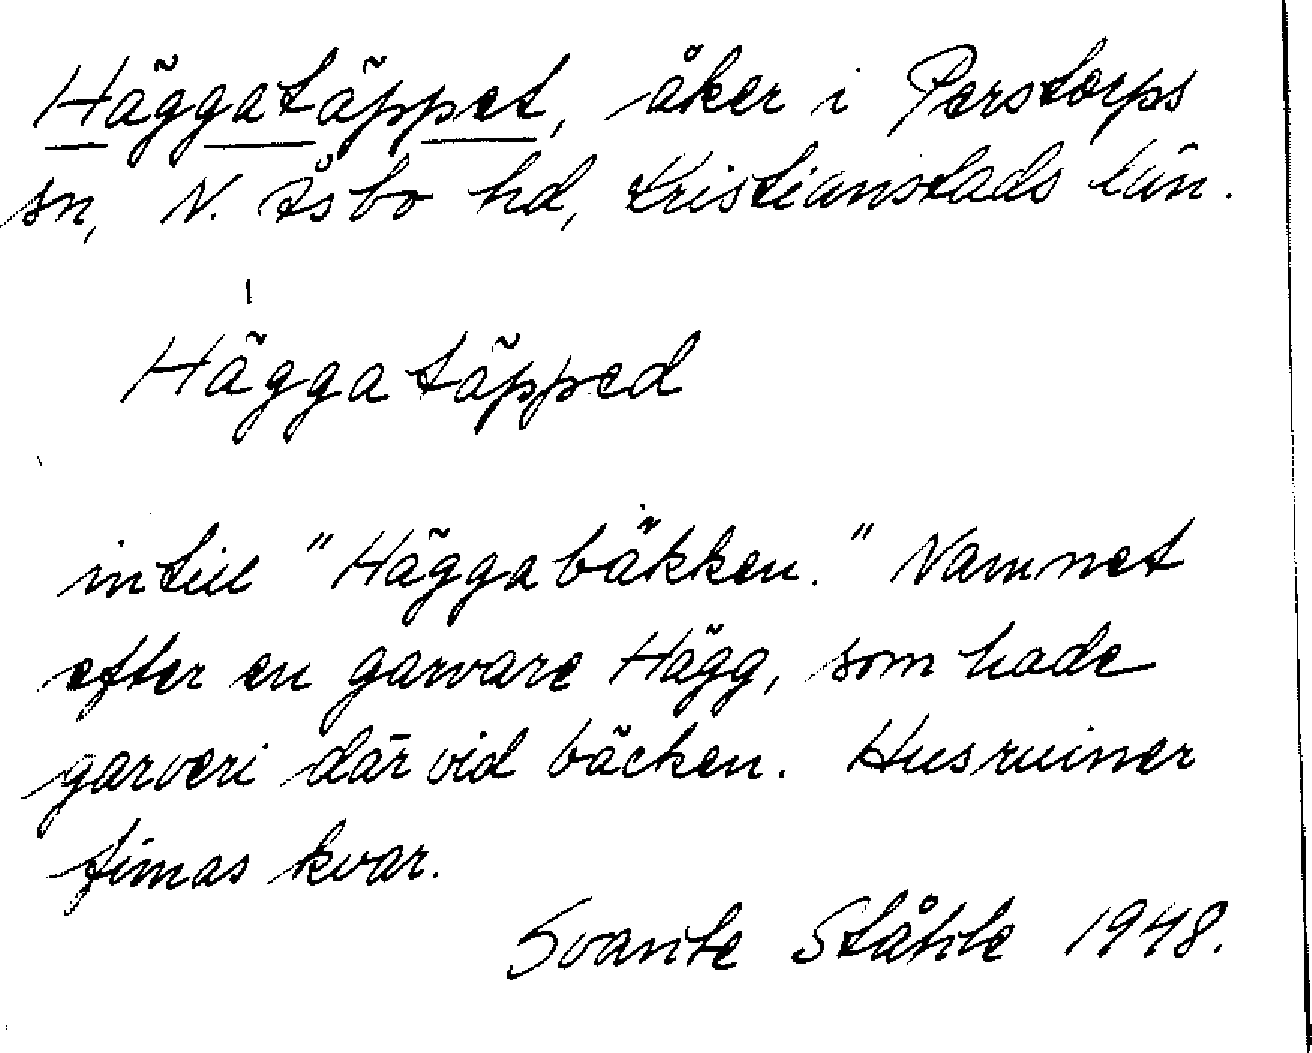 Häggatäppet, åker i Perstorps
sn, N. Åsbo hd, Kristianstads län.
Häggatäpped
intill "Häggabäkken." Namnet
efter en garvare Hägg, som hade
garveri där vid bäcken. Husruiner
finnas kvar.
Svante Ståhle 1948.